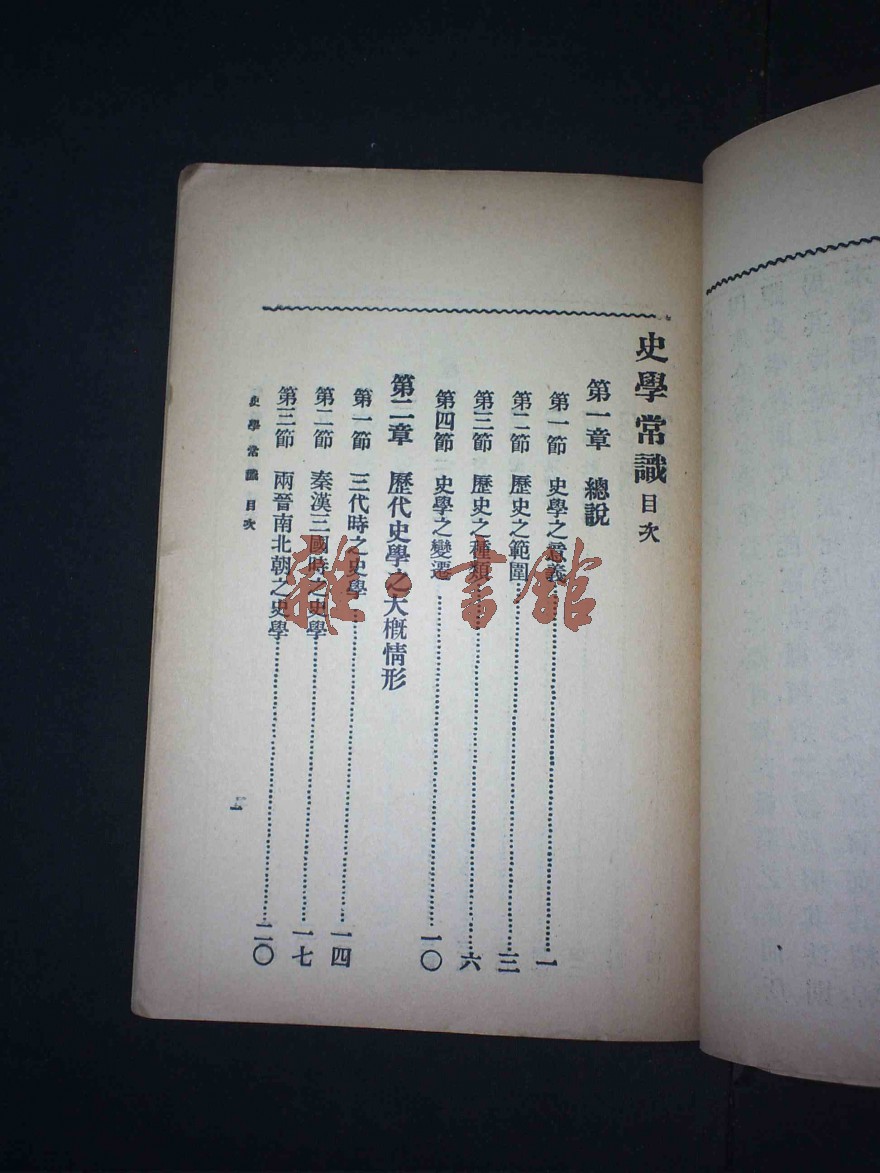 史學常識目次
第一章 總說
第一節 史學之意義……一
第二節 歷史之範圍……三
第三節 歷史之種類……六
第四節 史學之變遷……一〇
第二章 歷代史學之大概情形
第一節 三代時之史學……一四
第二節 秦漢三國時之史學……一七
第三節 兩晉南北朝之史學……二〇
史學常識 目次
一
雜·書館